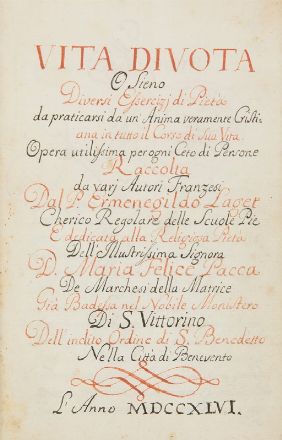 VITA DIVOTA
O Sieno
Diversi Essercizj di Pietà
da praticarsi da un' Anima veramente Cristi-
ana in tutto il Corso di Sua Vita.
Opera utilissima per ogni Ceto di Persone
Raccolta
da varj Autori Franzesi
Dal P. Ermenegildo Laget
Cherico Regolare delle Scuole Pie
E dedicata alla Religiosa Pietà
Dell' Illustrissima Signora
D. Maria Felice Pacca
De Marchesi della Matrice
Già Badessa nel Nobile Monistero
Di S. Vittorino
Dell' inclito Ordine di S. Benedetto
Nella Città di Benevento
L' Anno MDCCXLVI.